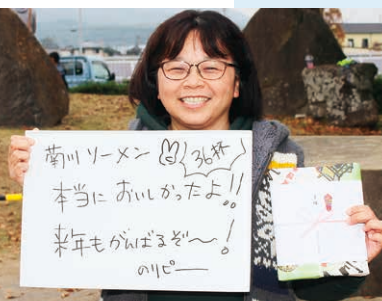 菊川ソーメン 36杯
本当においしかったよ!!
来年もがんばるぞ〜!
のりピー